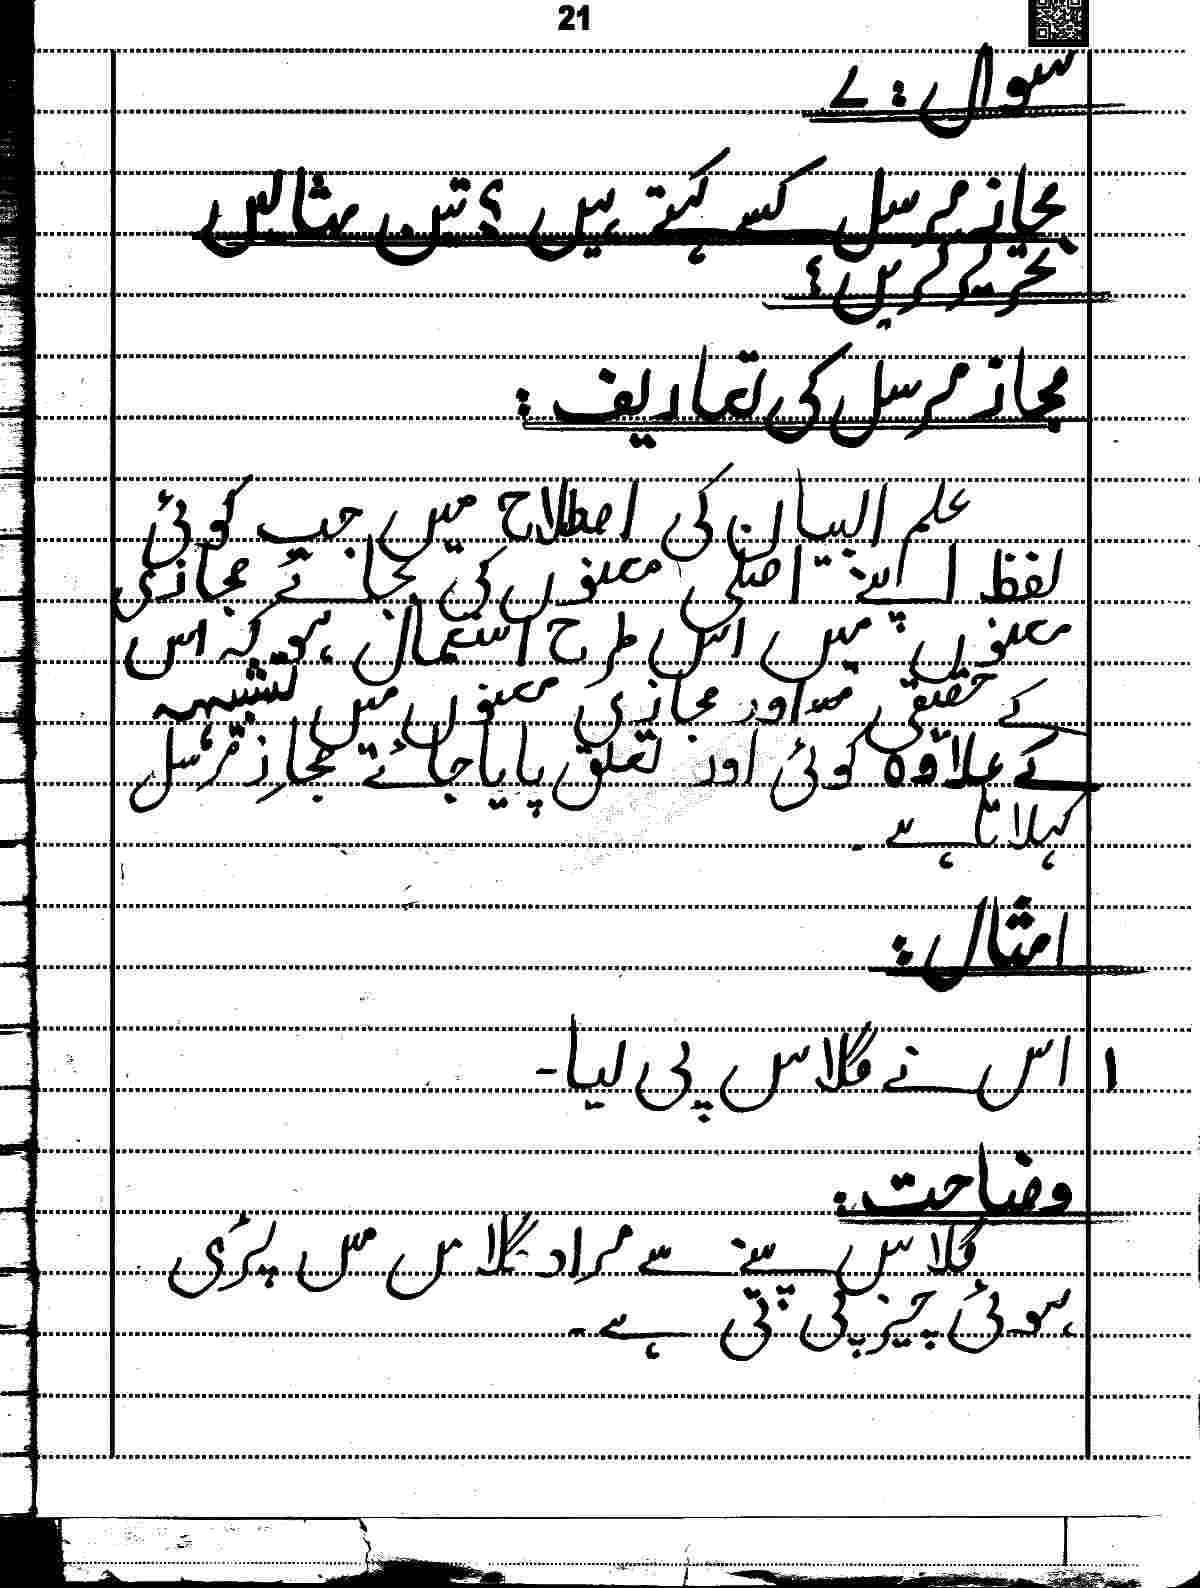 21
سوال: 7
مجاز مرسل کسے کہتے ہیں ؟ تین مثالیں
تحریر کریں؟
مجاز مرسل کی تعاریف:
علم البیان کی اصطلاح میں جب کوئی
لفظ اپنے اصلی معنوں کی بجائے مجازی
معنوں میں اس طرح استعمال ہو کہ اس
کے حقیقی اور مجازی معنوں میں تشبیہہ
کے علاوہ کوئی اور تعلق پایا جائے مجاز مرسل
کہلاتا ہے
امثال:
1 اس نے گلاس پی لیا۔
وضاحت:
گلاس پینے سے مراد گلاس میں پڑی
ہوئی چیز پی تی ہے۔